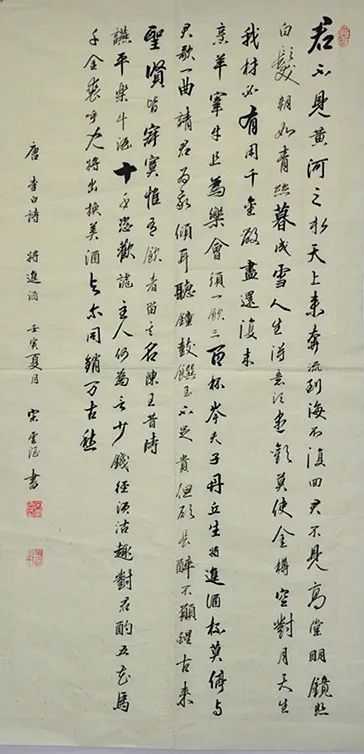 君不見黃河之水天上來奔流到海不復回君不見高堂明鏡悲
白髮朝如青絲暮成雪人生得意須盡歡莫使金樽空對月天生
我材必有用千金散盡還復來
烹羊宰牛且為樂會須一飲三百杯岑夫子丹丘生將進酒杯莫停與
君歌一曲請君為我傾耳聽鐘鼓饌玉不足貴但願長醉不願醒古來
聖賢皆寂寞惟有飲者留其名陳王昔時
讌平樂斗酒十千恣歡謔主人何為言少錢徑須沽取對君酌五花馬
千金裘呼兒將出換美酒與爾同銷万古愁
唐 李白詩 將進酒 壬寅夏月 宋雲 書